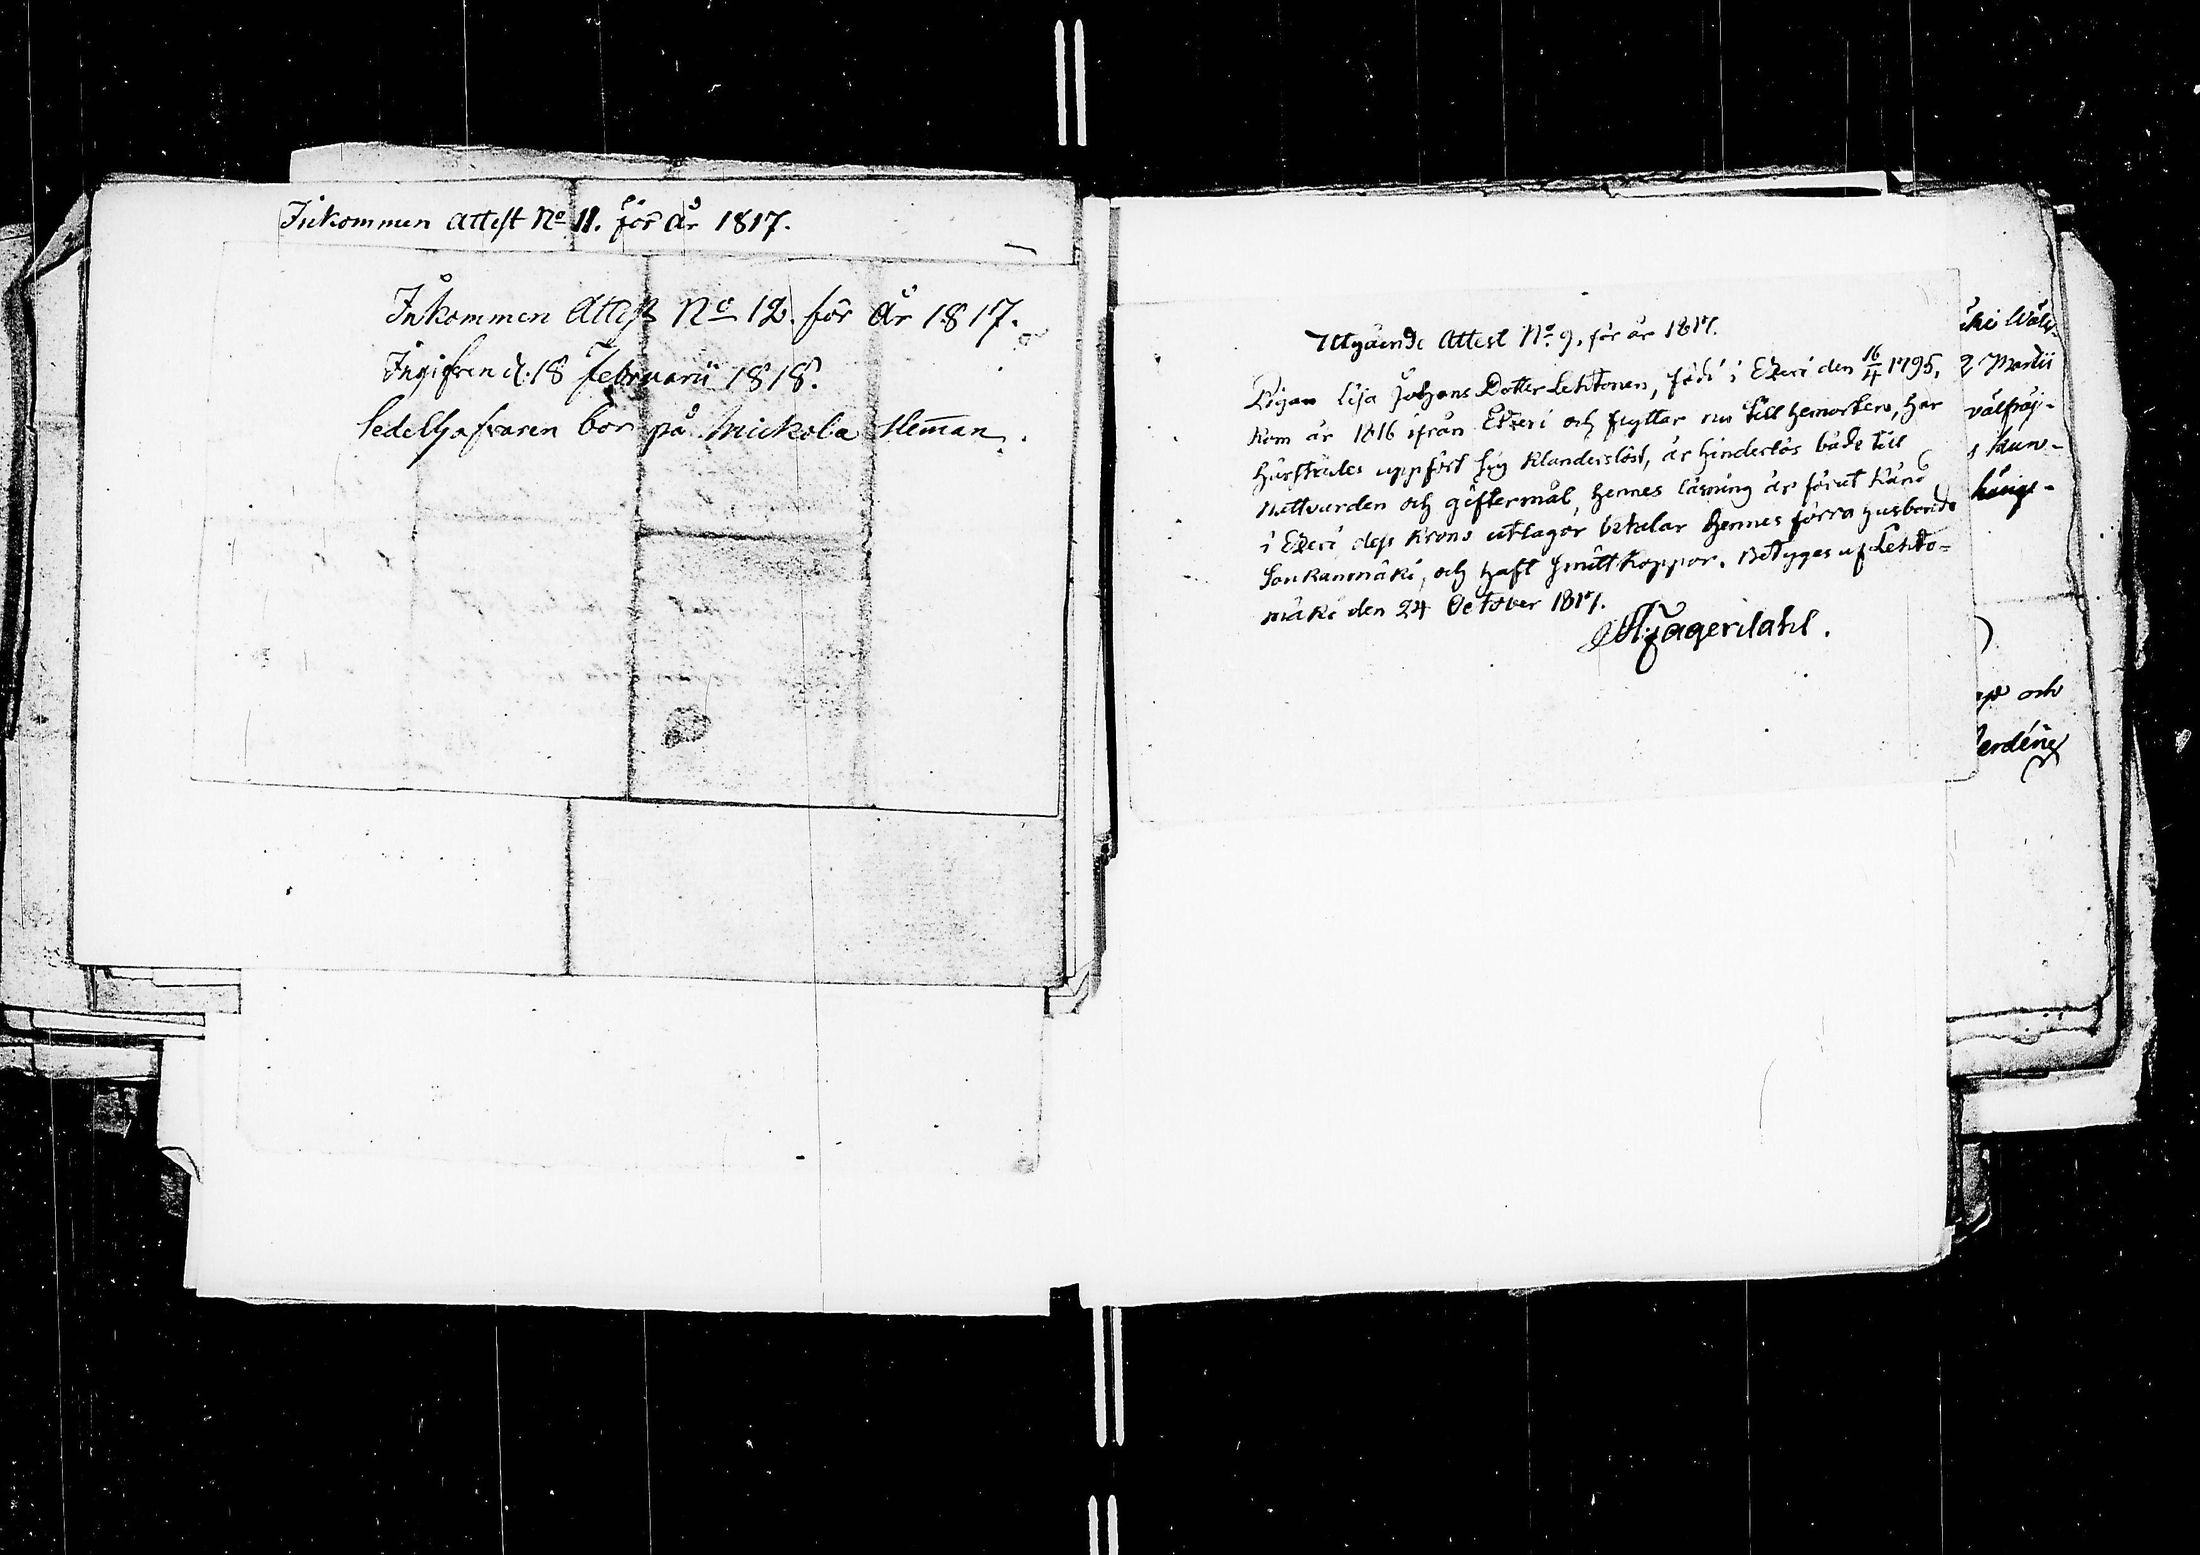 Inkommen Attest No 11. för år 1817.
Inkommen Attest No 12. för år 1817.
Ingifven d. 18 Februarii 1818.
Sedelhafvaren bor på Mickola Hem̅an.
Utgående Attest No. 9. för år 1817.
Pigan Lisa Johans Dotter Lehtonen, född i Etzeri den 16/4 1795,
kom år 1816 ifrån Etzeri och flyttar nu till hemorten, har
härstädes uppfört sig klanderslöst, är hinderlös både till
nattvarden och giftermål, hennes läsning är förut känd
i Etzeri dess Krono utlagor betalar hennes förra husbonde
Soukanmäki, och haft smittkoppor. Betygas af Lehto=
mäki den 24 October 1817.
Fagerdahl.
2 Martii
välfräj-
s kun-
och